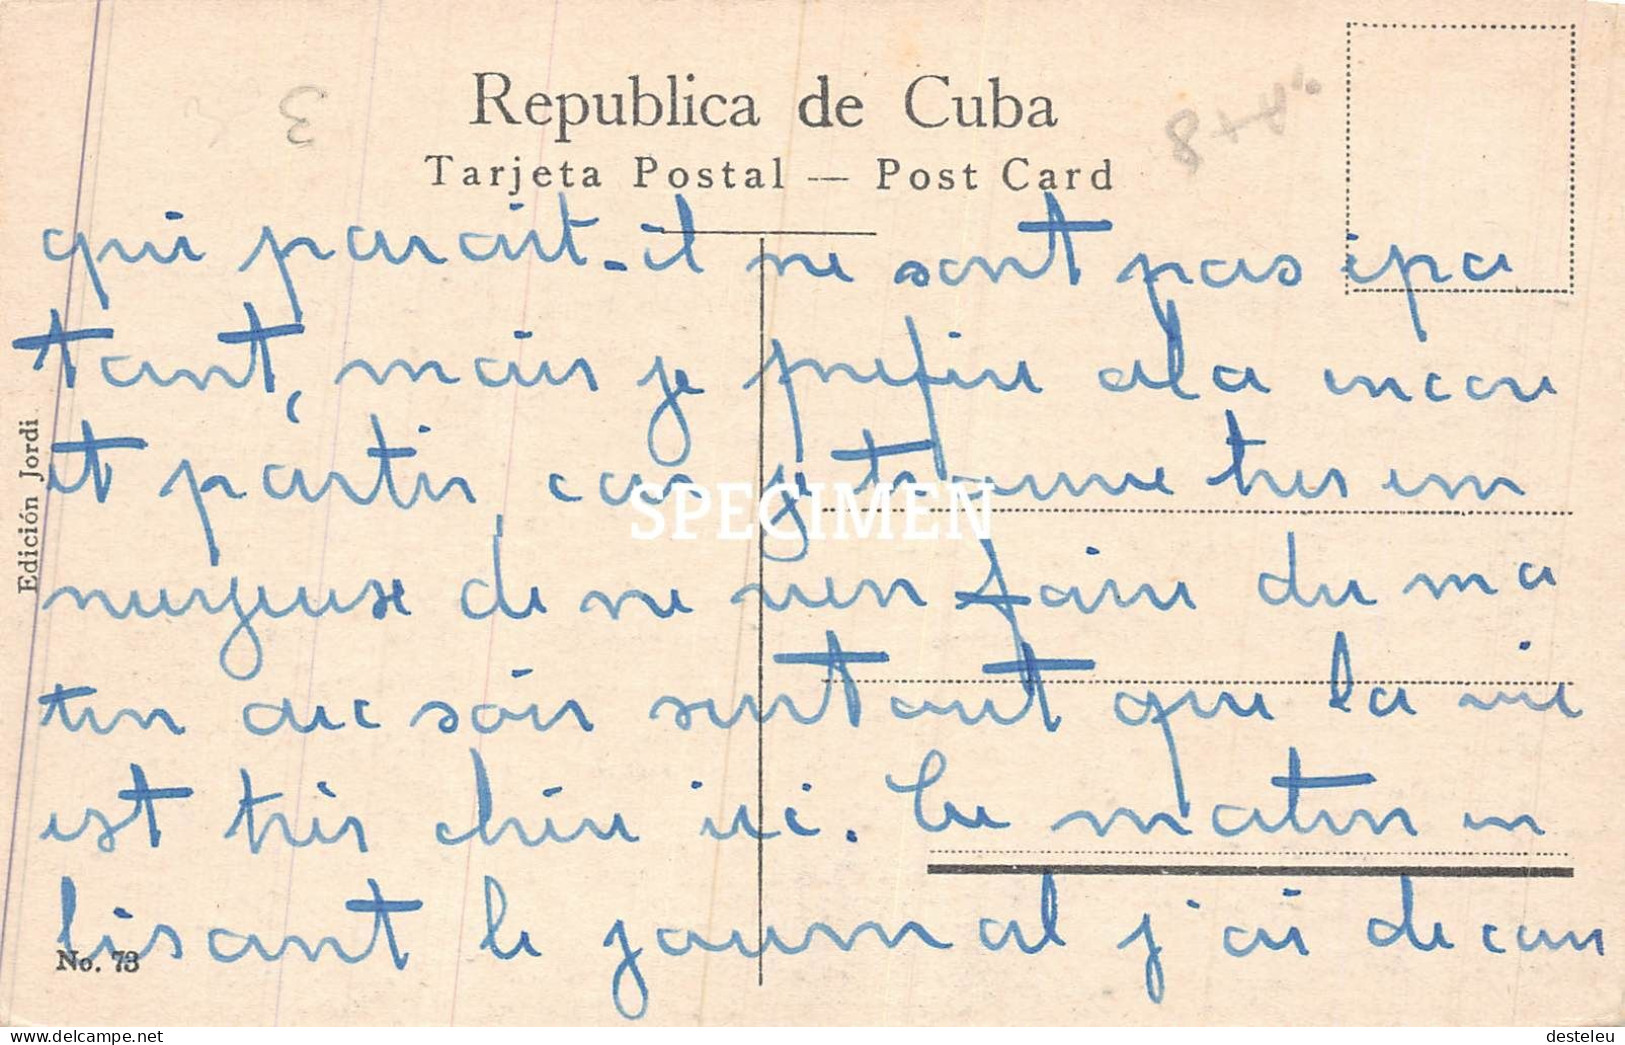 Republica de Cuba
Tarjeta Postal — Post Card
3
8+A%
qui parait-il ne sont pas épa
tant, mais je préfère cela encore
et partir, car je trouve tres en
nuyeuse de ne rien faire du ma
tin au soir surtout que la vie
est très chère ici. Ce matin en
lisant le journal j'ai decou
Edición Jordi
No. 73
SPECIMEN
www.delcampe.net
desteleu